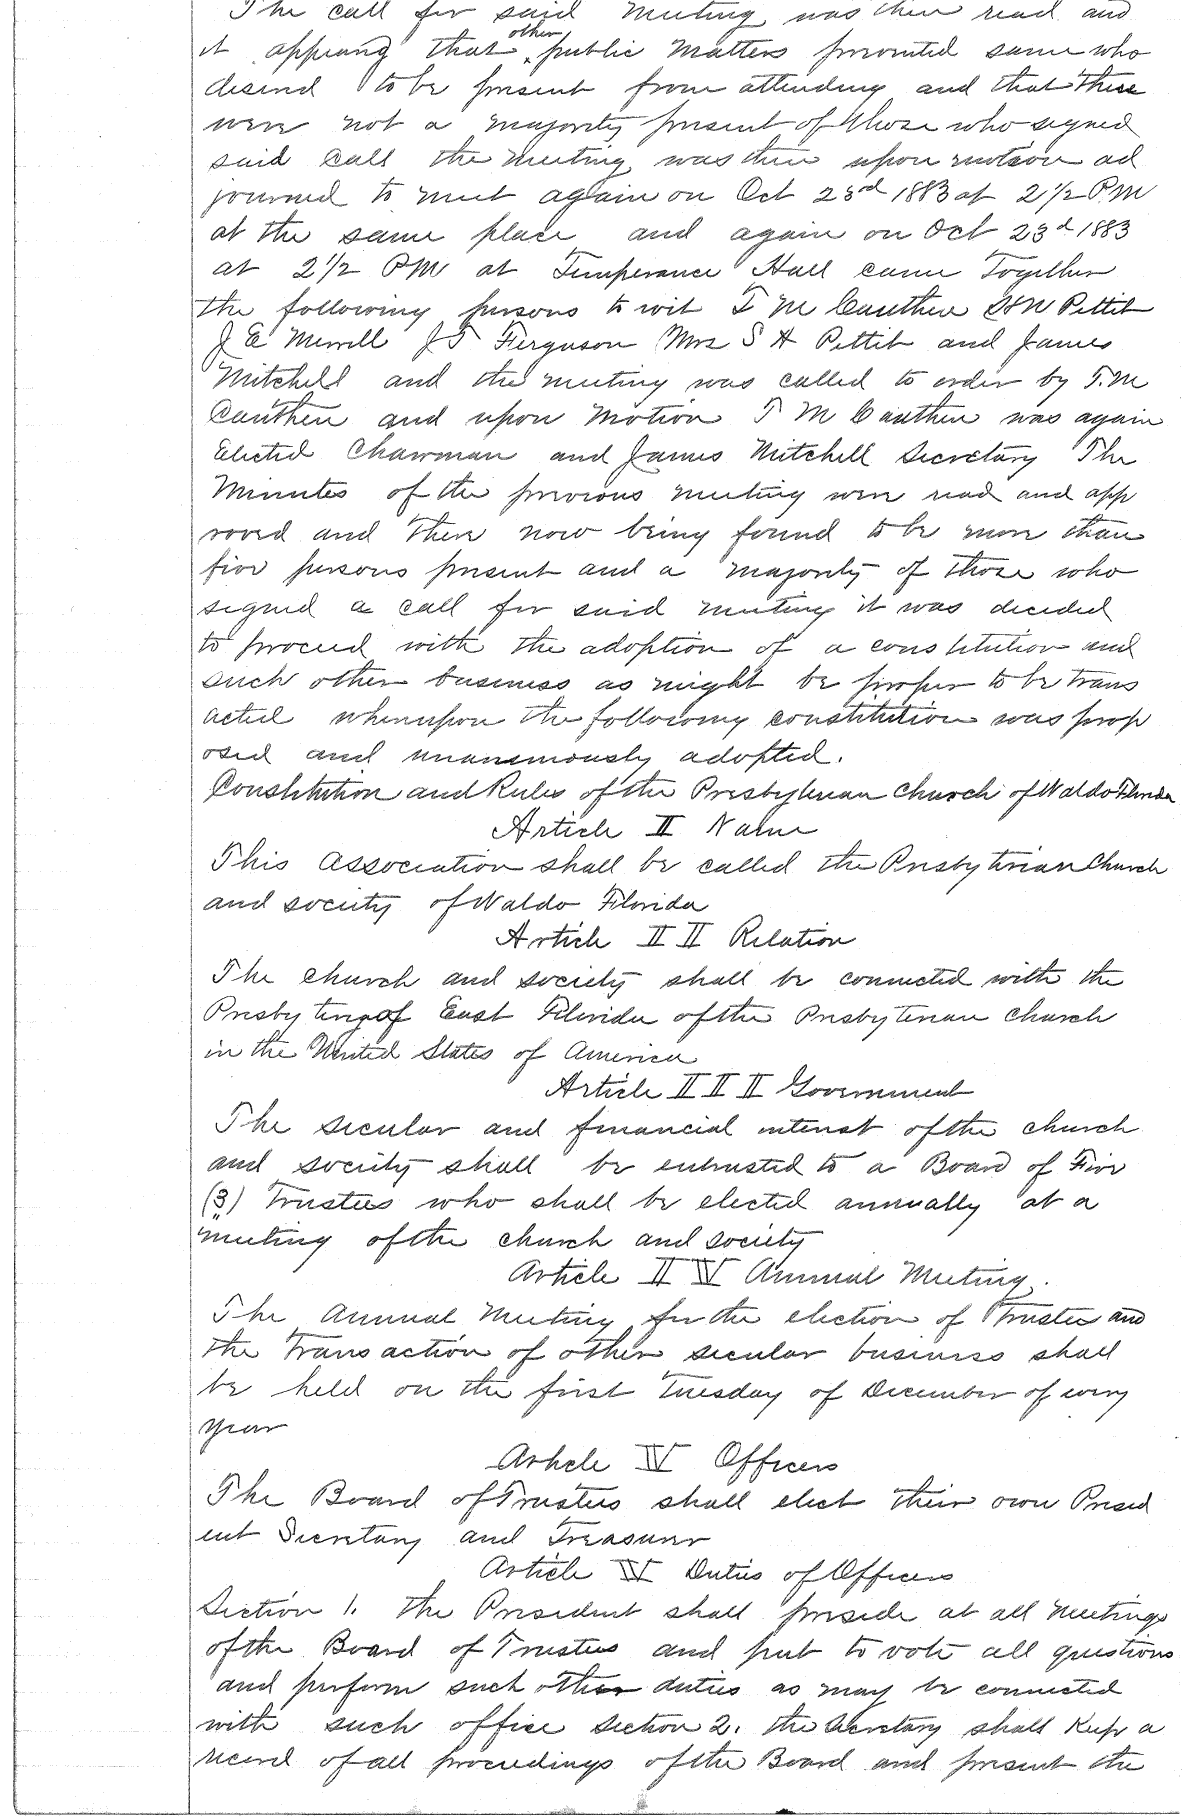 The call for said Meeting was then read and
it appearing that other public Matters prevented some who
desired to be present from attending and that there
were not a majority present of those who signed
said call the Meeting was then upon motion ad
journed to meet again on Oct 23rd 1883 at 2 1/2 PM
at the same place and again on Oct 23d 1883
at 2 1/2 PM at Temperance Hall came Together
the following persons to wit T M Cauthen H N Pettit
J E Merrill J T Ferguson Mrs S A Pettit and James
Mitchell and the meeting was called to order by T. M
Cauthen and upon Motion T M Cauthen was again
Elected Chairman and James Mitchell Secretary The
Minutes of the previous meeting were read and app
roved and there now being found to be more than
five persons present and a majority of those who
signed a call for said meeting it was decided
to proceed with the adoption of a constitution and
such other business as might be proper to be trans
acted whereupon the following constitution was prop
osed and unanimously adopted.
Constitution and Rules of the Presbyterian Church of Waldo Florida
Article I Name
This Association shall be called the Presbyterian Church
and society of Waldo Florida
Article II Relation
The church and society shall be connected with the
Presbytery of East Florida of the Presbyterian Church
in the United States of America
Article III Government
The secular and financial interest of the church
and society shall be entrusted to a Board of Five
(3) Trustees who shall be elected annually at a
meeting of the church and society
Article IV Annual Meeting.
The Annual Meeting for the election of Trustee and
the Transaction of other secular business shall
be held on the first Tuesday of December of every
year
Article V Officers
The Board of Trustees shall elect their own Presid
ent Secretary and Treasurer
Article V Duties of Officers
Section 1. the President shall preside at all Meetings
of the Board of Trustees and put to vote all questions
and perform such other duties as may be connected
with such office Section 2. the Secretary shall Keep a
record of all proceedings of the Board and present the